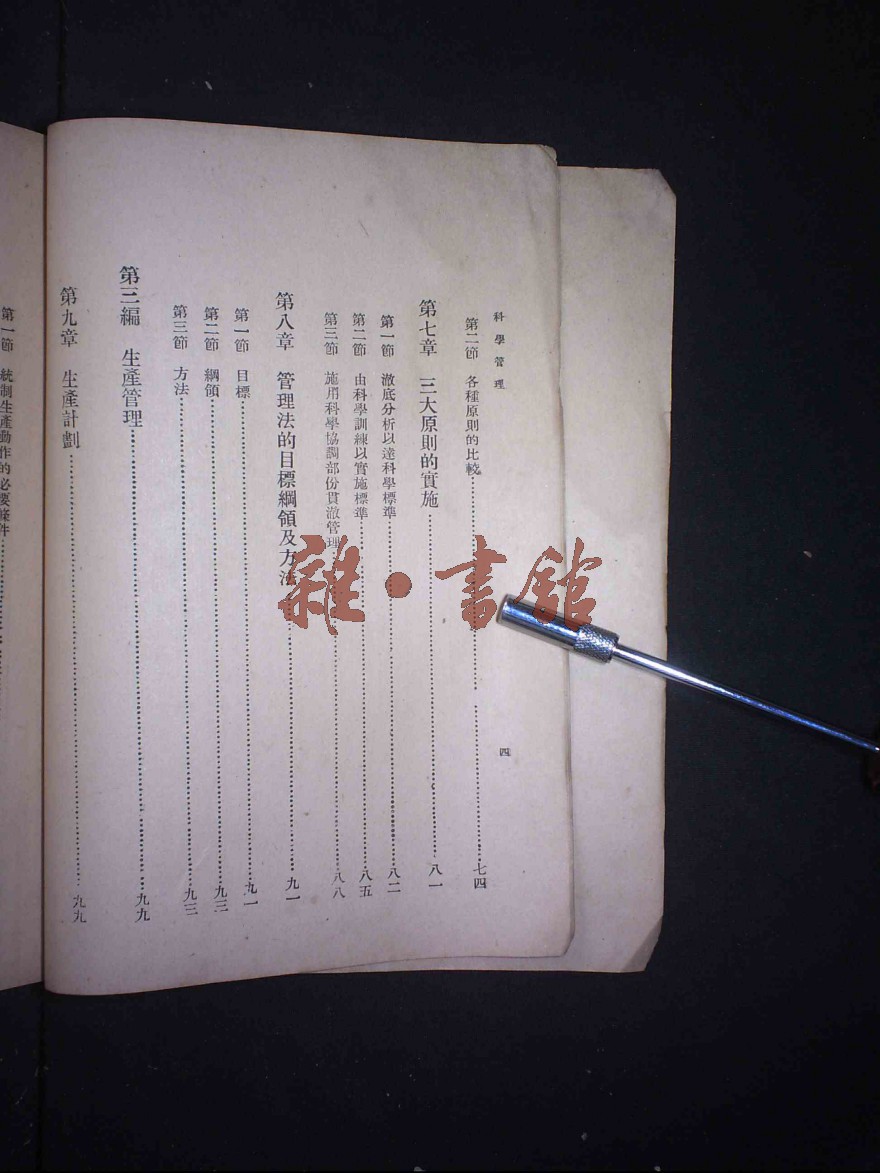 科學管理
四
第二節　各種原則的比較……七四
第七章　三大原則的實施……八一
第一節　澈底分析以達科學標準……八二
第二節　由科學訓練以實施標準……八五
第三節　施用科學協調部份貫澈管理……八八
第八章　管理法的目標綱領及方法……九一
第一節　目標……九一
第二節　綱領……九三
第三節　方法……九三
第三編　生產管理……九九
第九章　生產計劃……九九
第一節　統制生產動作的必要條件
雜·書館